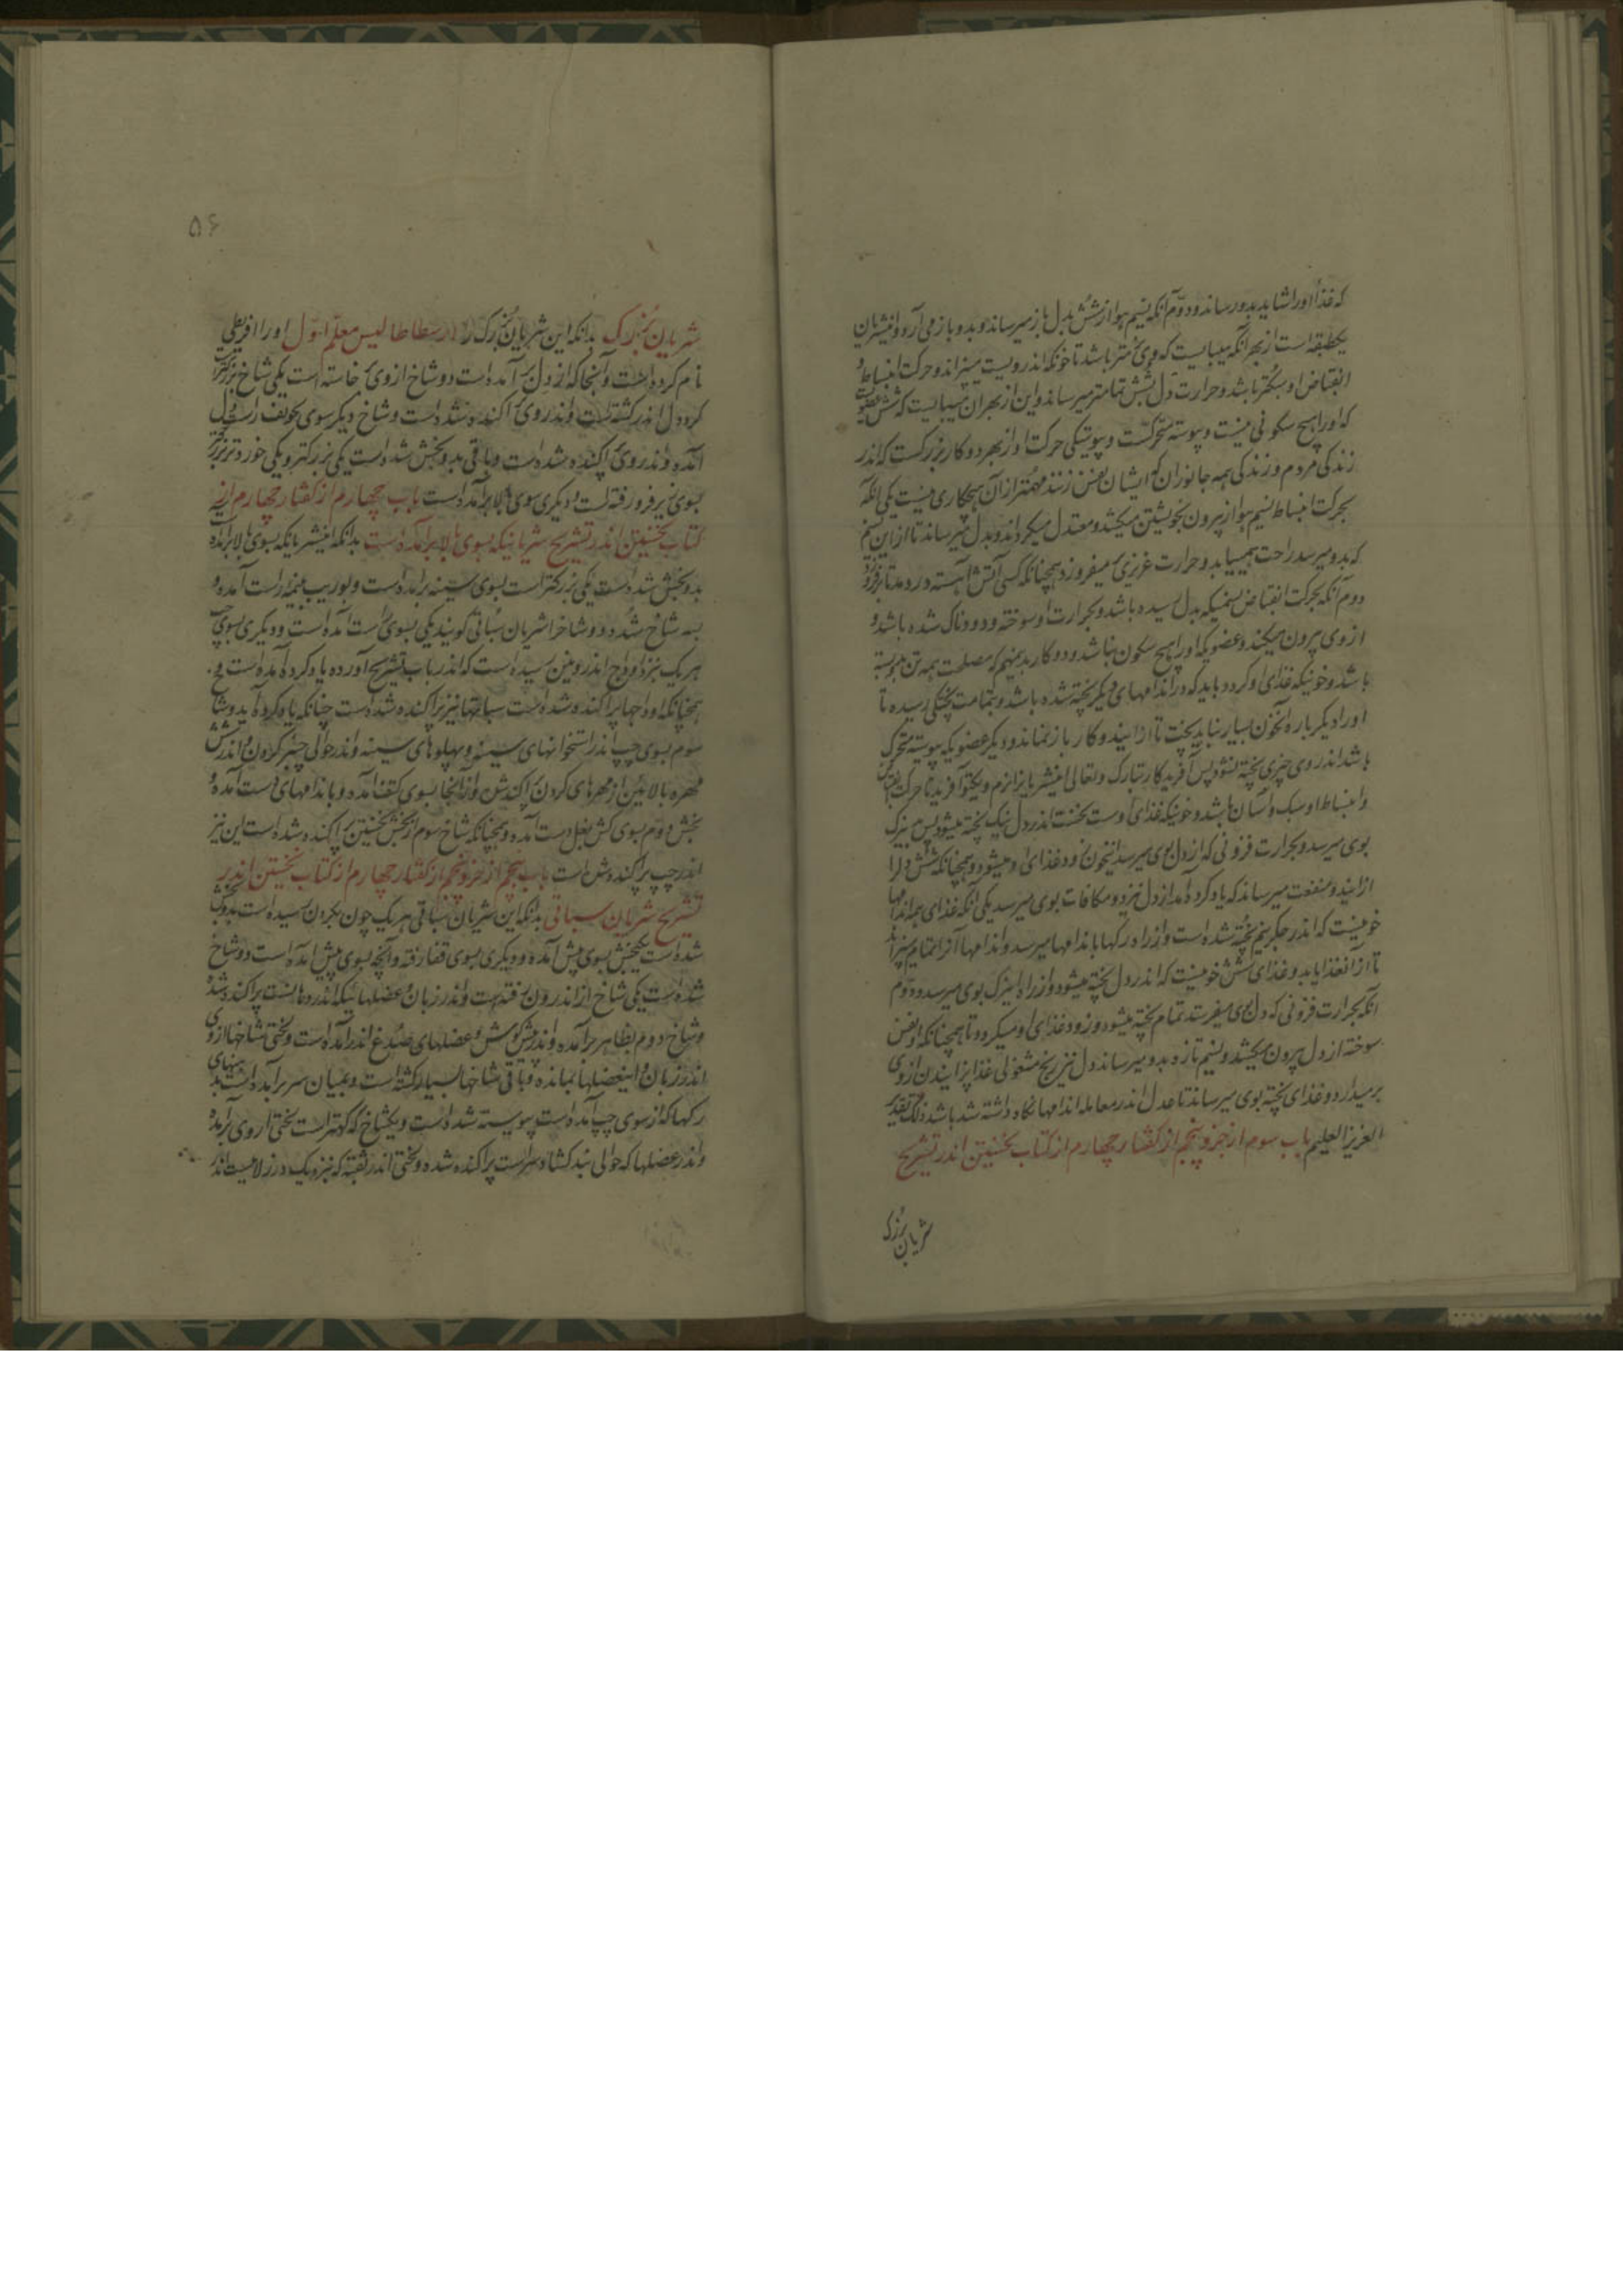 که غذا او را شاید بدو رساند و دوم آنکه نسیم هوا از شش بدل باز میرساند و بدو باز می آرد و این شریان
یکطبقه است از بهر آنکه میبایست که وی نرمتر باشد تا خونکه اندرویست میتراند و حرکت انبساط و
انقباض او سبکتر باشد و حرارت دل بشش تمامتر میرساند و این از بهر آن میبایست که شش عضویست
که او را هیچ سکونی نیست و پیوسته متحرکست و پیوستگی حرکت او از بهر دو کار بزرگست که اندر
زندگی مردم و زندگی همه جانوران که ایشان نفس زنند مهمتر از آن هیچکاری نیست یکی آنکه
بحرکت انبساط نسیم هوا از بیرون بخویشتن میکشد و معتدل میگرداند و بدل میرساند تا از این نسیم
که بدو میرسد راحت همییابد و حرارت غریزی میفروزد همچنانکه کسی آتش آهسته در دمد تا برفروزد
دوم آنکه بحرکت انقباض نسیمیکه بدل رسیده باشد و بحرارت او سوخته و دودناک شده باشد و
از وی بیرون میکند و عضویکه او را هیچ سکون نباشد و دو کار بدینمهم که مصلحت همه تن پیوسته
باشد و خونیکه غذای او گردد باید که در اندامهای دیگر پخته شده باشد و بتمامت پختگی رسیده تا
او را دیگر باره آنخون بسیار نباید پخت تا از ایندو کار باز نماند و دیگر عضویکه پیوسته متحرک
باشد اندر وی چیزی پخته نشود پس آفریدگار تبارک و تعالی اینشریانرا نرم و یکتو آفرید تا حرکت انقباض
و انبساط او سبک و آسان باشد و خونیکه غذای اوست نخست اندر دل نیک پخته میشود پس بنزدیک
بوی میرسد و بحرارت فزونی که از دل بوی میرسد اینخون زود غذای او میشود و همچنانکه شش دل را
از ایند و منفعت میرساند که یاد کرده آمد از دل نیز دو مکافات بوی میرسد یکی آنکه غذای همه اندامها
خونیست که اندر جگر نیم پخته شده است و از راه رگها باندامها میرسد و اندامها آنرا تمام میپزاند
تا از آن غذا یابد و غذای شش خونیست که اندر دل پخته میشود و از راه اینرگ بوی میرسد و دوم
آنکه بحرارت فزونی که دل بوی میفرستد تمام پخته میشود و زود غذای او میگردد تا همچنانکه او نفس
سوخته از دل بیرون میکشد و نسیم تازه بدو میرساند دل نیز رنج مشغولی غذا پزانیدن از وی
برمیدارد و غذای پخته بوی میرساند تا عدل اندر معامله اندامها نگاه داشته شد باشد ذلک تقدیر
العزیز العلیم باب سوم از جزو پنجم از گفتار چهارم از کتاب نخستین اندر تشریح
شریان بزرک
۵۶
شریان بزرک بدانکه این شریان بزرک را ارسطاطالیس معلم اول او را افریطی
نام کرده است و آنجا که از دل بر آمده است دو شاخ از وی خاسته است یکی شاخ بزرگتر
گرد دل اندر گشته است و اندر وی پراکنده شده است و شاخ دیگر سوی تجویف راست دل
آمده و اندر وی پراکنده شده است و باقی بدو بخش شده است یکی بزرگتر و یکی خوردتر بزرگتر
بسوی زیر فرو رفته است و دیگری سوی بالا بر آمده است باب چهارم از گفتار چهارم از
کتاب نخستین اندر تشریح شریانیکه بسوی بالا بر آمده است بدانکه اینشریانیکه بسوی بالا بر آمده است
بدو بخش شده است یکی بزرگتر است بسوی سینه بر آمده است و بوریب نیمه راست آمده و
بسه شاخ شده و دو شاخ را شریان سباتی گویند یکی بسوی راست آمده است و دیگری بسوی چپ
هر یک نزد اوداج اندرونین رسیده است که اندر باب تشریح آورده یاد کرده آمده است و
همچنانکه اوداجها پراکنده شده است سباتها نیز پراکنده شده است چنانکه یاد کرده آید و شاخ
سوم بسوی چپ اندر استخوانهای سینه و پهلوهای سینه و اندر حوالی چنبر گردن و اندر شش
مهره بالائین از مهرهای گردن پراکندش و از آنجا بسوی کتف آمده و باندامهای دست آمده و
بخش دوم بسوی کش بغل دست آمده و همچنانکه شاخ سوم از بخش نخستین پراکنده شده است این نیز
اندر چپ پراکنده شده است باب پنجم از جزو پنجم از گفتار چهارم از کتاب نخستین اندر
تشریح شریان سباتی بدانکه این شریان سباتی هر یک چون بگردن رسیده است بدو بخش
شده است یکبخش بسوی پیش آمده و دیگری بسوی قفا رفته و آنچه بسوی پیش آمده است دو شاخ
شده است یکی شاخ از اندرون رفته است و اندر زبان و عضلهائیکه اندر دهانست پراکنده شد
و شاخ دوم بظاهر بر آمده و اندر پیش گوش و عضلهای صدغ اندر آمده است و لختی شاخها از وی
اندر زبان و اینعضلها بمانده و باقی شاخها بسیار گشته است و بمیان سر بر آمده است بدینهای
رگها که از سوی چپ آمده است پیوسته شده است و یکشاخ که کهتر است لختی از وی بر آمده
و اندر عضلها که حوالی بند گشاد سر است پراکنده شده و لختی اندر ثقبه که نزدیک درز لامیست اندر